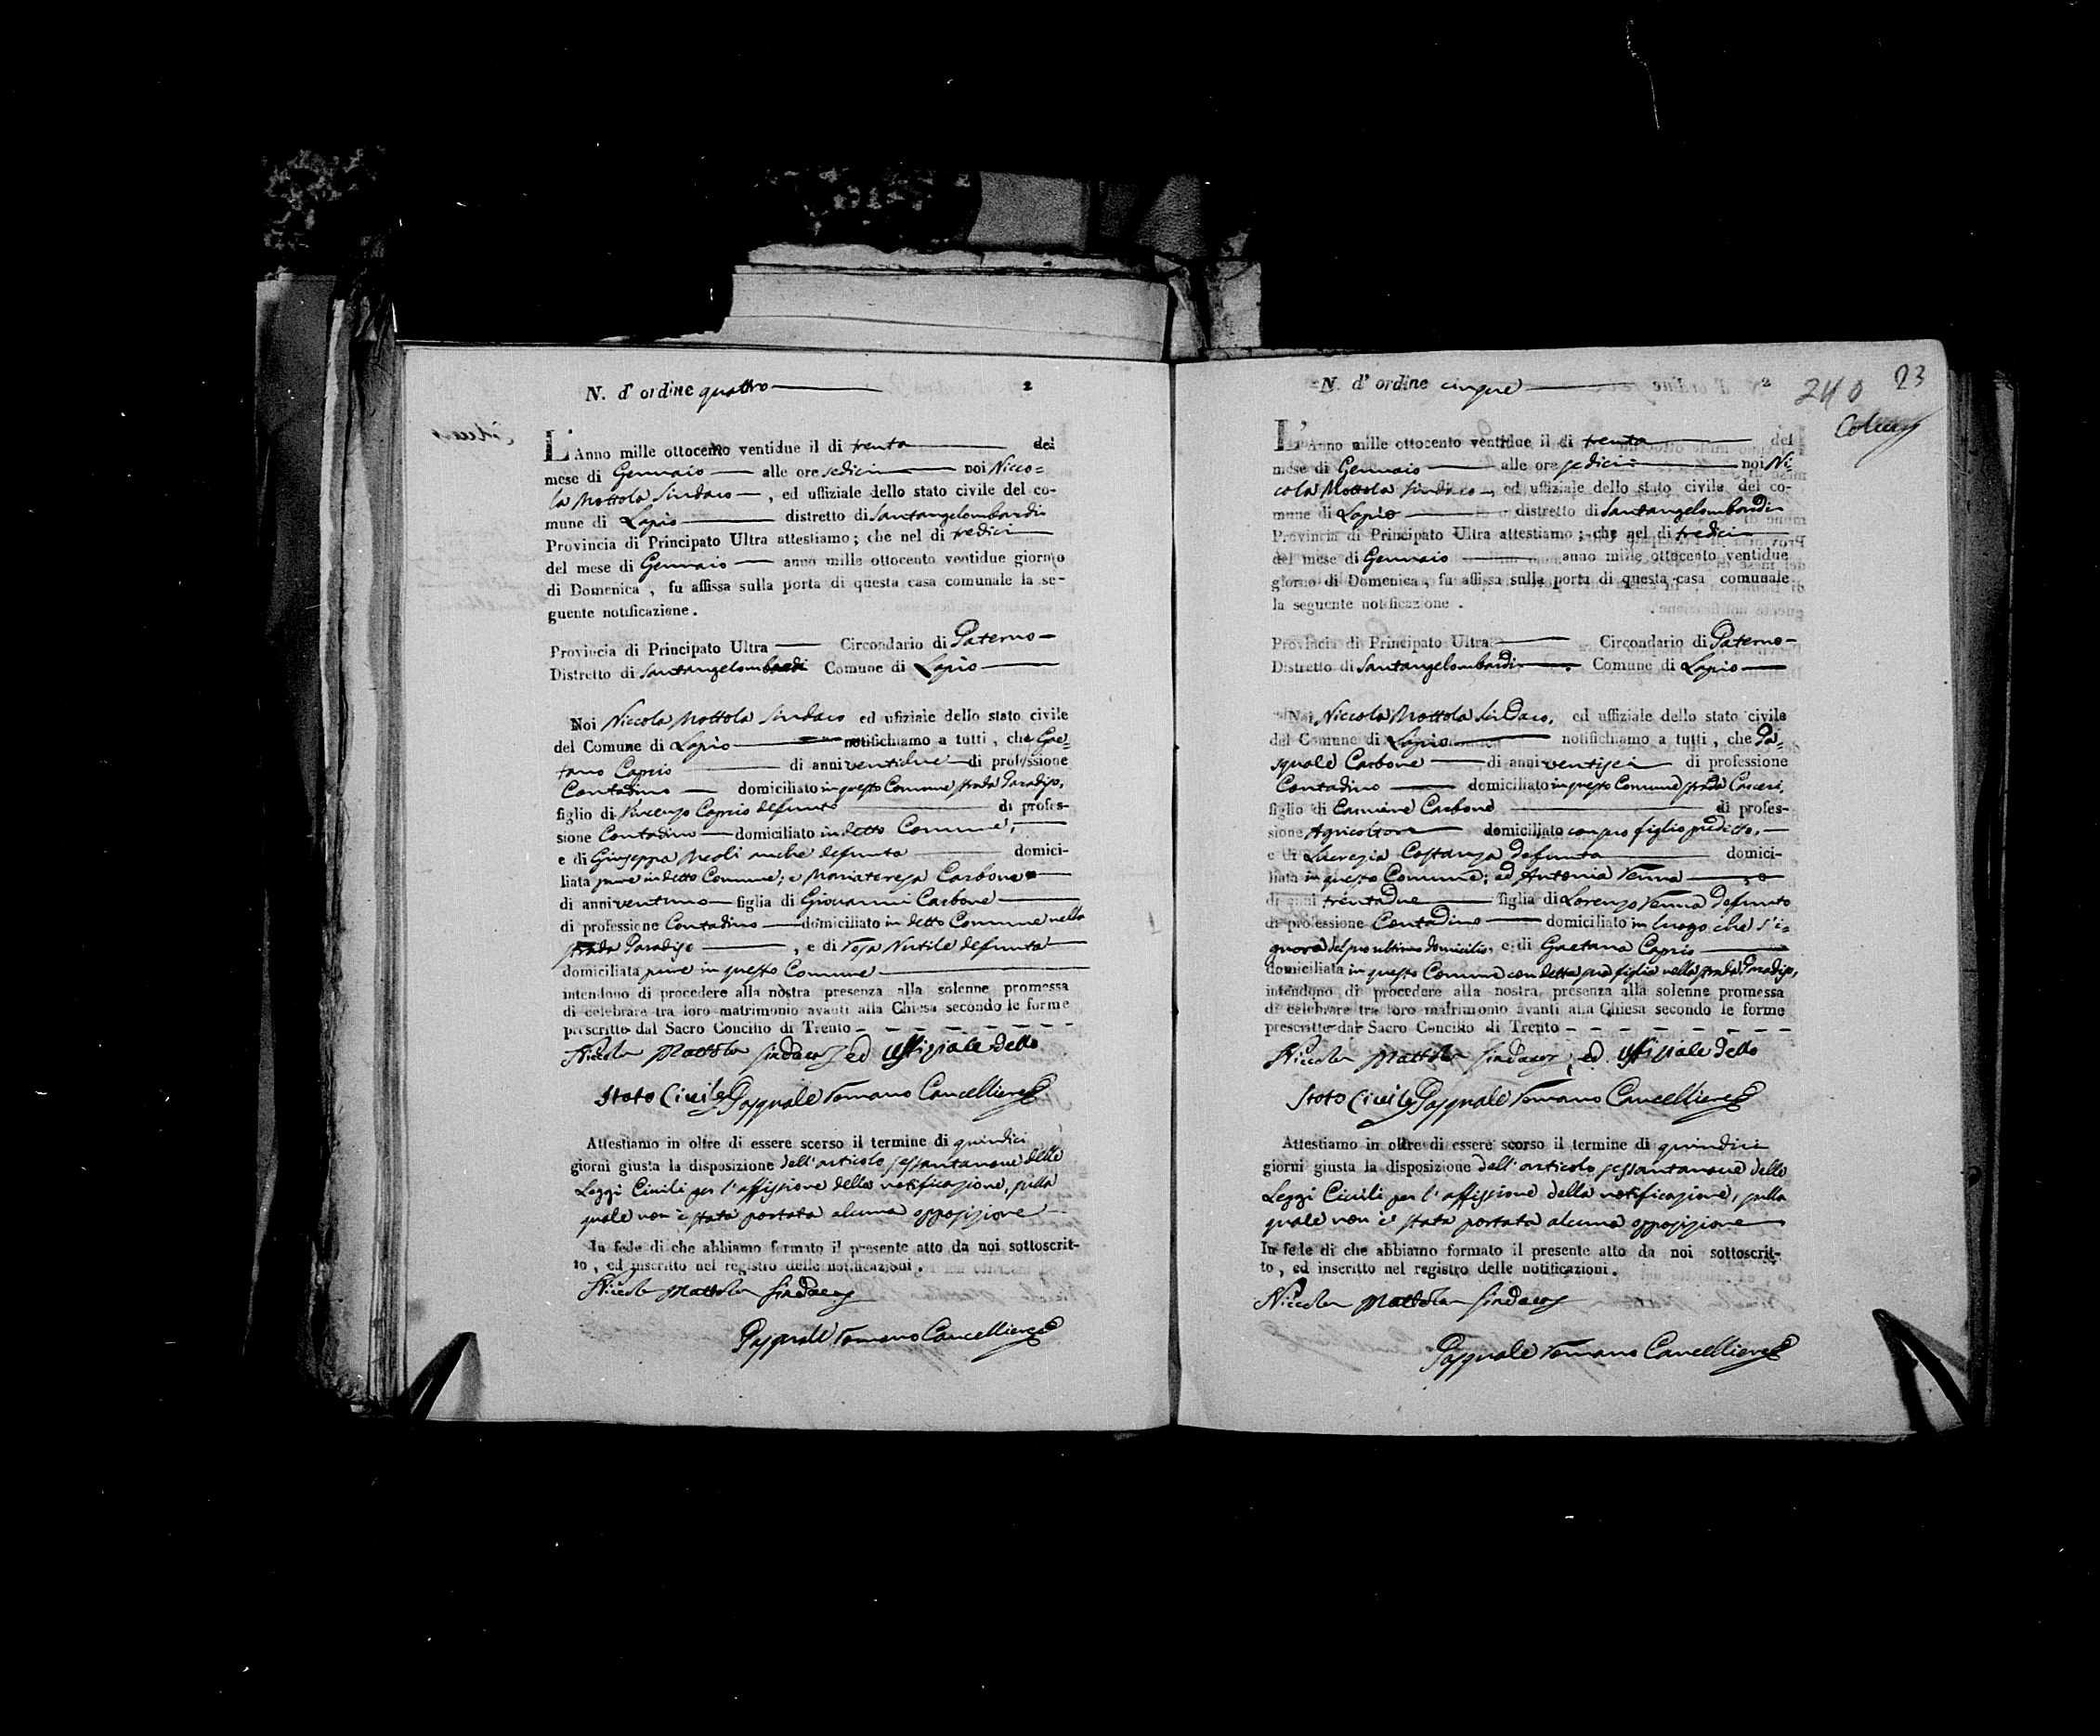 N. d'ordine quattro 2
L'Anno mille ottocento ventidue il di trenta del
mese di Gennaio alle ore sedici noi Nicco=
la Mottola Sindaco, ed uffiziale dello stato civile del co-
mune di Lapio distretto di Santangelombardi
Provincia di Principato Ultra attestiamo; che nel di tredici
del mese di Gennaio anno mille ottocento ventidue giorno
di Domenica, fu affissa sulla porta di questa casa comunale la se-
guente notificazione.
Provincia di Principato Ultra Circondario di Paterno
Distretto di Santangelombardi Comune di Lapio
Noi Niccola Mottola Sindaco ed ufiziale dello stato civile
del Comune di Lapio notifichiamo a tutti, che Gae=
tano Caprio di anni ventidue di professione
Contadino domiciliato in questo Comune strada Paradiso,
figlio di Vincenzo Caprio defunto di profes-
sione Contadino domiciliato in detto Comune,
e di Giuseppa Meoli anche defunta domici-
liata pure in detto Comune; e Mariateresa Carbone
di anni ventuno figlia di Giovanni Carbone
di professione Contadino domiciliato in detto Comune nella
strada Paradiso, e di Rosa Nutile defunta
domiciliata pure in questo Comune
intendono di procedere alla nostra presenza alla solenne promessa
di celebrare tra loro matrimonio avanti alla Chiesa secondo le forme
prescritte dal Sacro Concilio di Trento
Niccola Mottola Sindaco ed Uffiziale dello
Stato Civile Pasquale Romano Cancelliere
Attestiamo in oltre di essere scorso il termine di quindici
giorni giusta la disposizione dell'articolo sessantanove delle
Leggi Civili per l'affissione della notificazione, sulla
quale non è stata portata alcuna opposizione
In fede di che abbiamo formato il presente atto da noi sottoscrit-
to, ed inscritto nel registro delle notificazioni.
Niccola Mottola Sindaco
Pasquale Romano Cancelliere
N. d'ordine cinque 2
240 23
L'Anno mille ottocento ventidue il di trenta del
mese di Gennaio alle ore sedici noi Ni-
cola Mottola Sindaco, ed uffiziale dello stato civile del co-
mune di Lapio distretto di Santangelombardi
Provincia di Principato Ultra attestiamo; che nel di tredici
del mese di Gennaio anno mille ottocento ventidue
giorno di Domenica, fu affissa sulla porta di questa casa comunale
la seguente notificazione.
Provincia di Principato Ultra Circondario di Paterno
Distretto di Santangelombardi Comune di Lapio
Noi Niccola Mottola Sindaco, ed uffiziale dello stato civile
del Comune di Lapio notifichiamo a tutti, che Pa=
squale Carbone di anni ventisei di professione
Contadino domiciliato in questo Comune strada Carceri,
figlio di Carmine Carbone di profes-
sione Agricoltore domiciliato con suo figlio predetto,
e di Lucrezia Costanza defunta domici-
liata in questo Comune; ed Antonia Renna
di anni trentadue figlia di Lorenzo Renna defunto
di professione Contadino domiciliato in luogo che s'i=
gnora del suo ultimo domicilio, e di Gaetana Caprio
domiciliata in questo Comune con detta sua figlia nella strada Paradiso,
intendono di procedere alla nostra presenza alla solenne promessa
di celebrare tra loro matrimonio avanti alla Chiesa secondo le forme
prescritte dal Sacro Concilio di Trento
Niccola Mottola Sindaco, ed Uffiziale dello
Stato Civile Pasquale Romano Cancelliere
Attestiamo in oltre di essere scorso il termine di quindici
giorni giusta la disposizione dell'articolo sessantanove delle
Leggi Civili per l'affissione della notificazione, sulla
quale non è stata portata alcuna opposizione
In fede di che abbiamo formato il presente atto da noi sottoscrit-
to, ed inscritto nel registro delle notificazioni.
Niccola Mottola Sindaco
Pasquale Romano Cancelliere